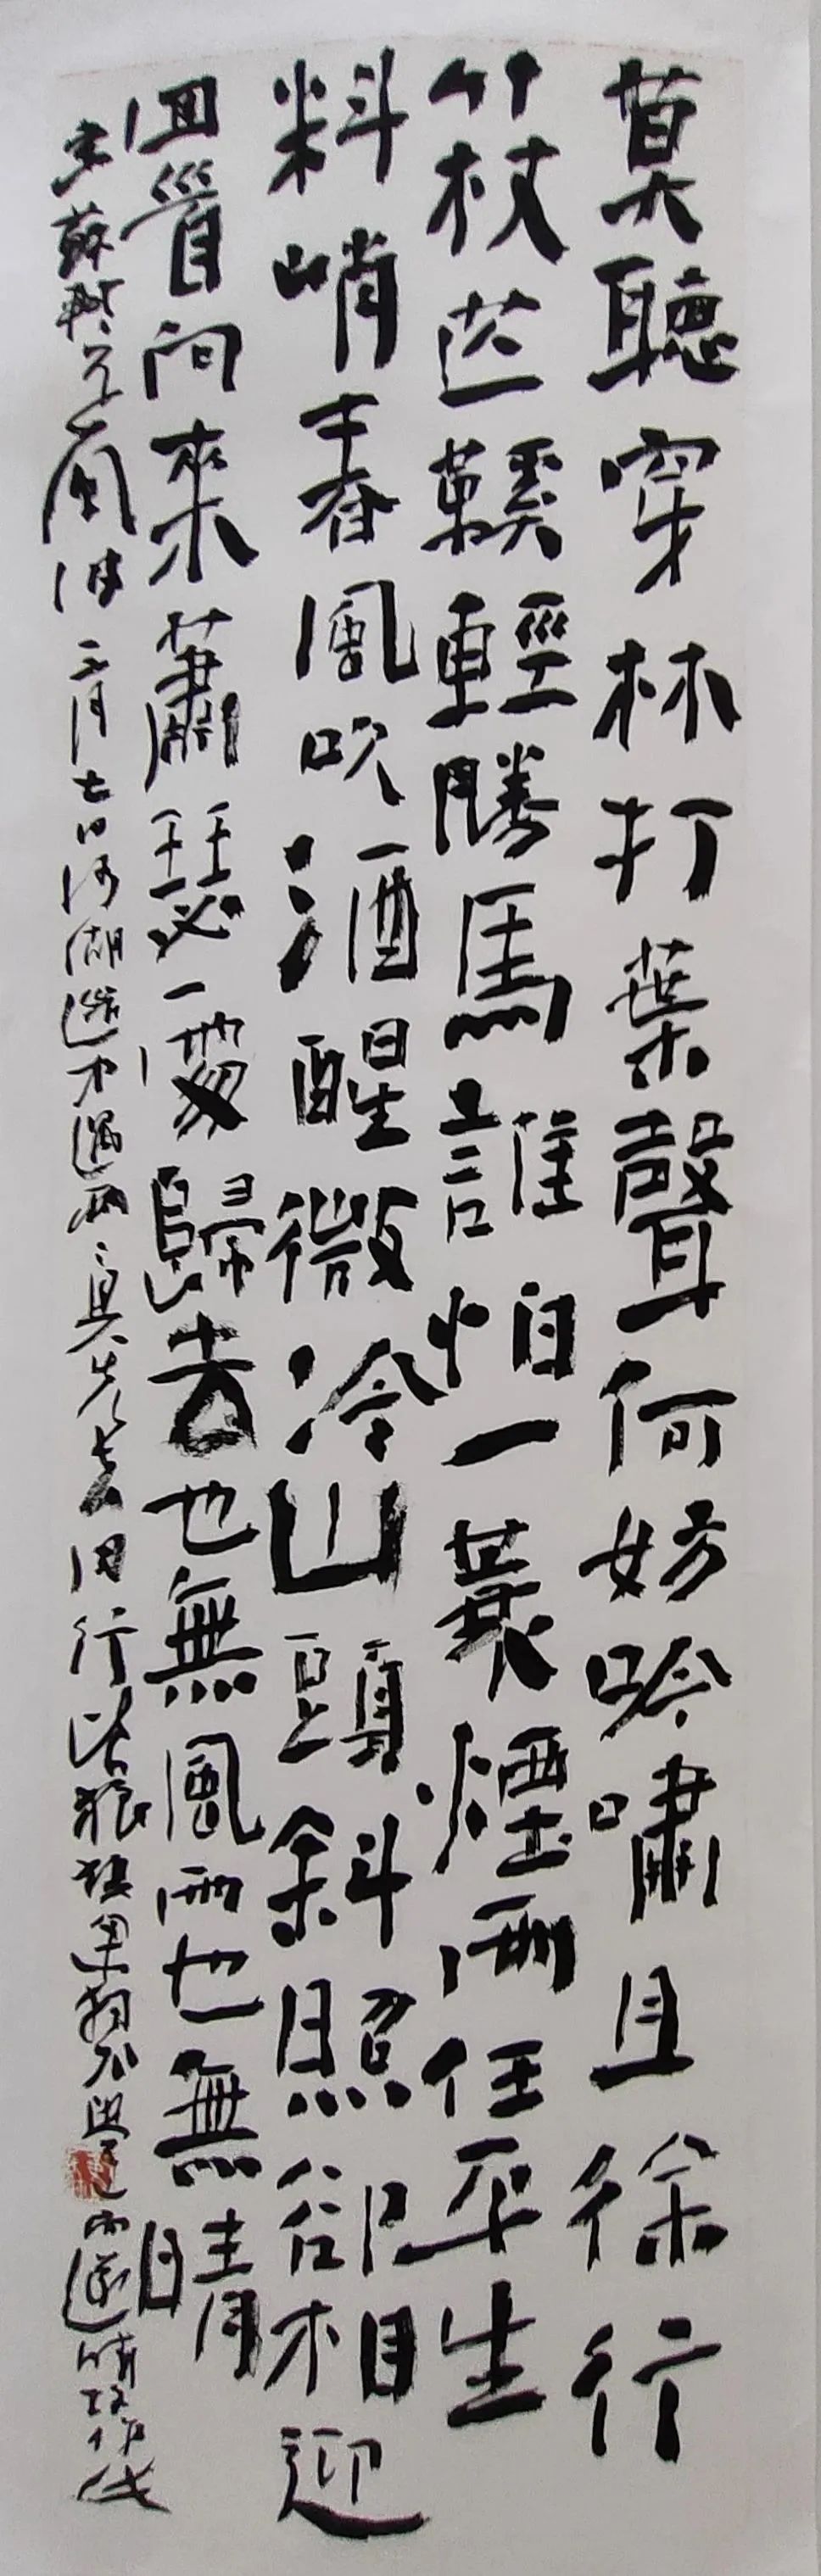 莫聽穿林打葉聲何妨吟嘯且徐行
竹杖芒鞵輕勝馬誰怕一蓑煙雨任平生
料峭春風吹酒醒微冷山頭斜照卻相迎
回首向來蕭瑟處歸去也無風雨也無晴
宋蘇軾定風波三月七日沙湖道中遇雨〻具先去同行皆狼狽余獨不覺已而遂晴故作此